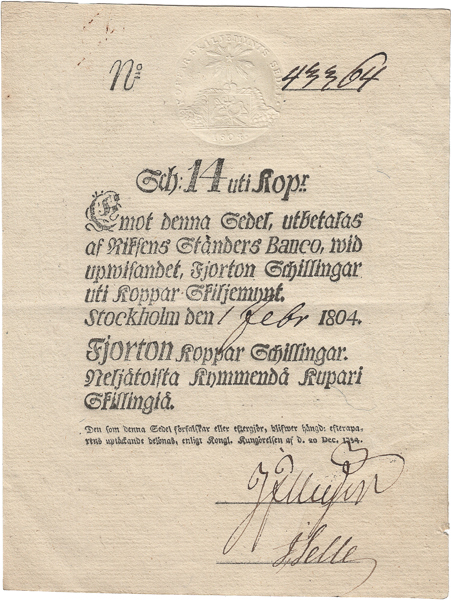 No 43364
Sch: 14 uti Kop.r
Emot denna Sedel, utbetalas
af Riksens Ständers Banco, wid
upwisandet, Fjorton Schillingar
uti Koppar-Skiljemynt.
Stockholm den 1 Febr 1804.
Fjorton Koppar Schillingar.
Neljätoista Kymmendä Kupari
Skillingiä.
Den som denna Sedel förfalskar eller eftergiör, blifwer hängd: efterapa-
rens uptäckande belönas, enligt Kongl. Kungörelsen af d. 20 Dec.